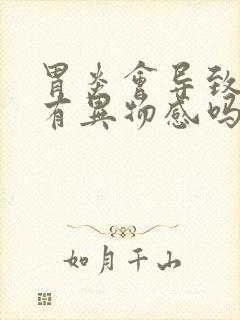 胃炎會导致
有異物感吗
如月千山